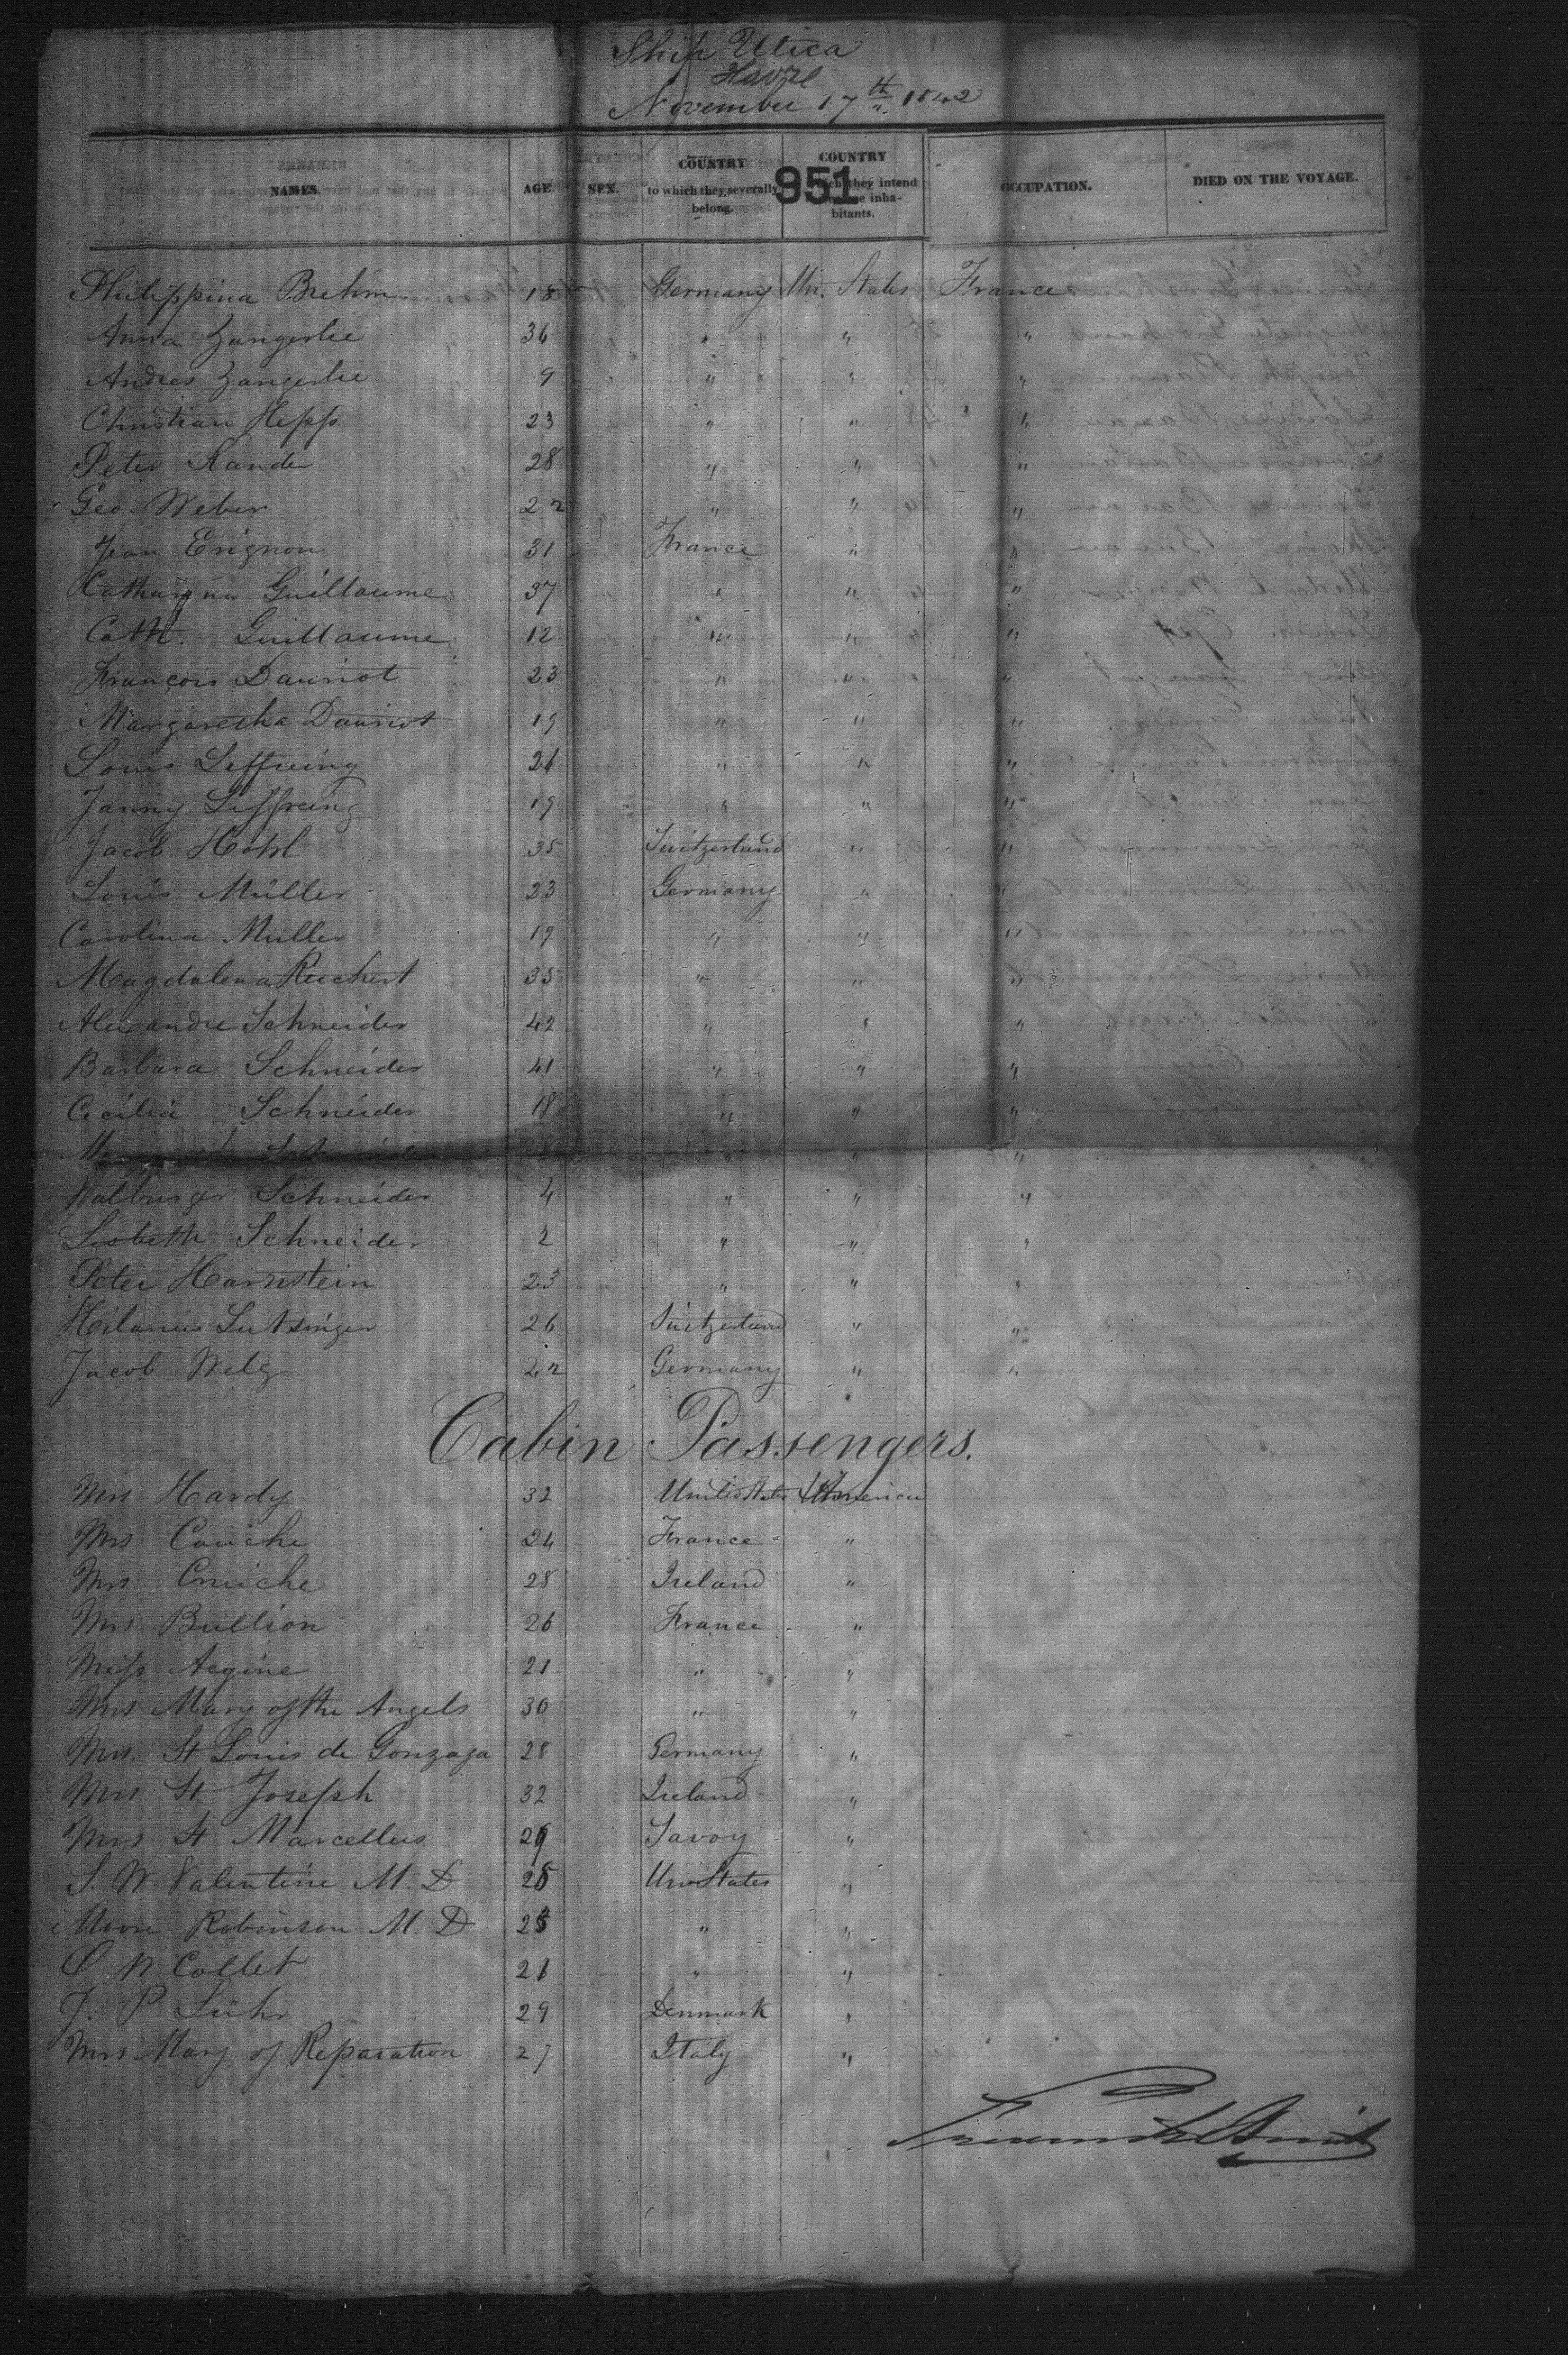 Ship Utica
Havre
November 17th 1842
951
NAMES. AGE. SEX. COUNTRY to which they severally belong. COUNTRY they intend inhabitants. OCCUPATION. DIED ON THE VOYAGE.
Philippina Brehm 18 Germany Un. States France
Anna Zangerlie 36 " " "
Andres Zangerlie 9 " " "
Christian Hepp 23 " " "
Peter Kander 28 " " "
Geo. Weber 22 " " "
Jean Erignon 31 France " "
Catharina Guillaume 37 " " "
Cath. Guillaume 12 " " "
François Dauriot 23 " " "
Margaretha Dauriot 19 " " "
Louis Leffreing 21 " " "
Janny Leffreing 19 " " "
Jacob Hohl 35 Switzerland " "
Louis Müller 23 Germany " "
Carolina Müller 19 " " "
Magdalena Ruchert 35 " " "
Alexandre Schneider 42 " " "
Barbara Schneider 41 " " "
Cecilia Schneider 18 " " "
Schneider " " "
Walburger Schneider 4 " " "
Lisbeth Schneider 2 " " "
Peter Harnstein 23 " " "
Hilarius Lutsinger 26 Switzerland " "
Jacob Welz 22 Germany " "
Cabin Passengers.
Mrs Hardy 32 United States America
Mrs Couiche 24 France "
Mrs Cruiche 28 Ireland "
Mrs Bullion 26 France "
Miss Aegine 21 " "
Mrs Mary of the Angels 30 " "
Mrs. St Louis de Gonzaga 28 Germany "
Mrs St Joseph 32 Ireland "
Mrs St Marcellus 29 Savoy "
S. W. Valentine M. D 25 Uni States "
Moore Robinson M. D 25 " "
O W Collet 21 " "
J. P Lühr 29 Denmark "
Mrs Mary of Reparation 27 Italy "